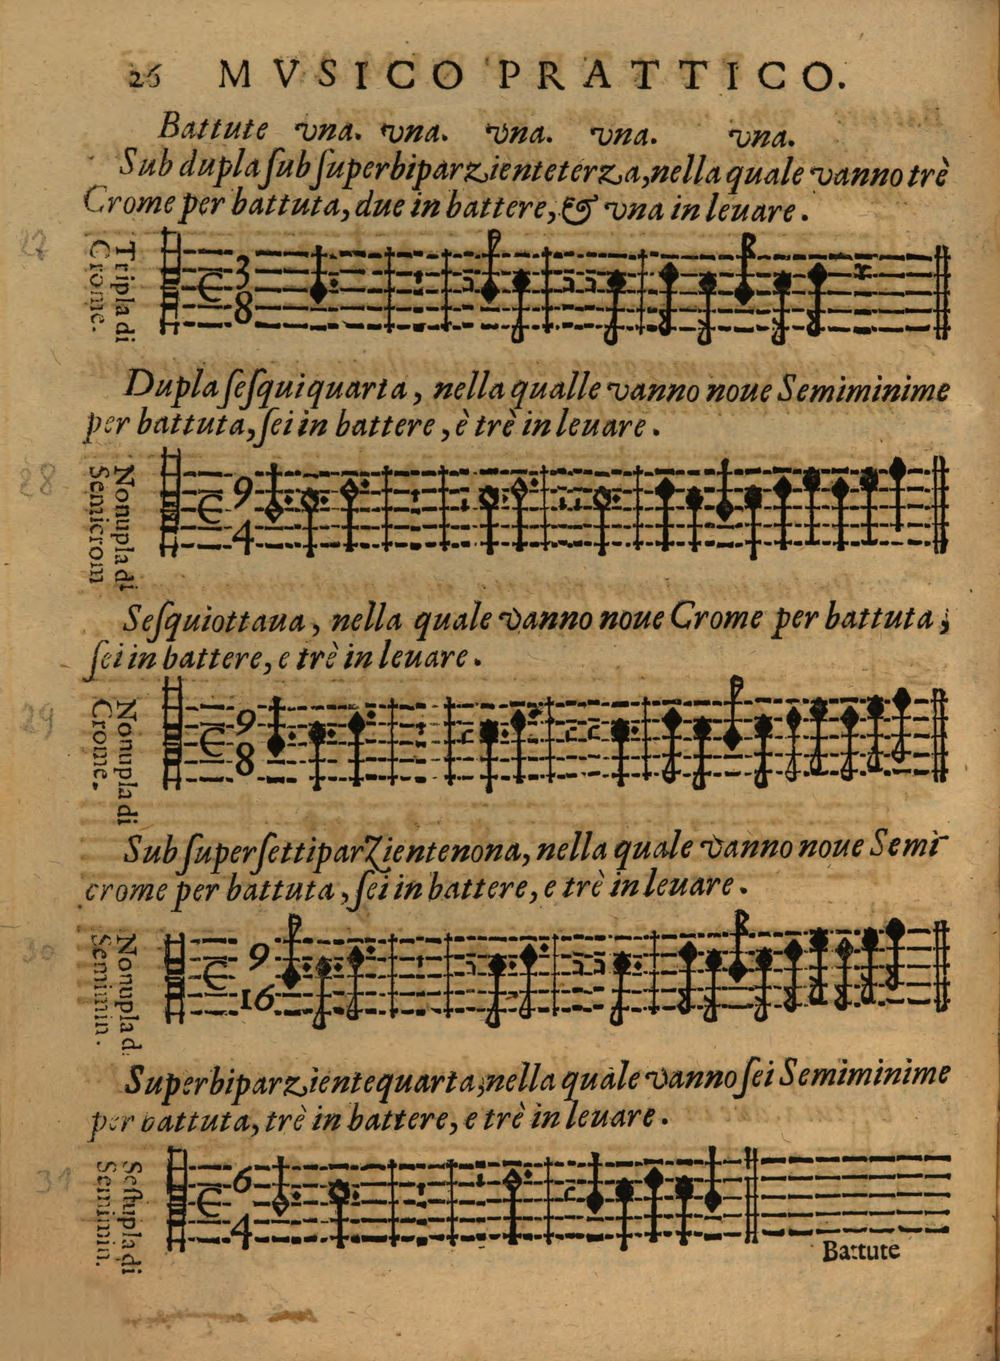 26 MVSICO PRATTICO.
Battute vna. vna. vna. vna. vna.
Sub dupla ſub ſuperbiparzienteterza, nella quale vanno trè
Crome per battuta, due in battere, & vna in leuare.
27
Tripla di
Crome.
3
8
Dupla ſeſquiquarta, nella qualle vanno noue Semiminime
per battuta, ſei in battere, è trè in leuare.
28
Nonupla di
Semicrom
9
4
Seſquiottaua, nella quale vanno noue Crome per battuta;
ſei in battere, e trè in leuare.
29
Nonupla di
Crome.
9
8
Sub ſuperſettiparZientenona, nella quale vanno noue Semi-
crome per battuta, ſei in battere, e trè in leuare.
30
Nonupla d.
Semimin.
9
16
Superbiparzientequarta, nella quale vanno ſei Semiminime
per battuta, trè in battere, e trè in leuare.
31
Seſtupla di
Semimin.
6
4
Battute